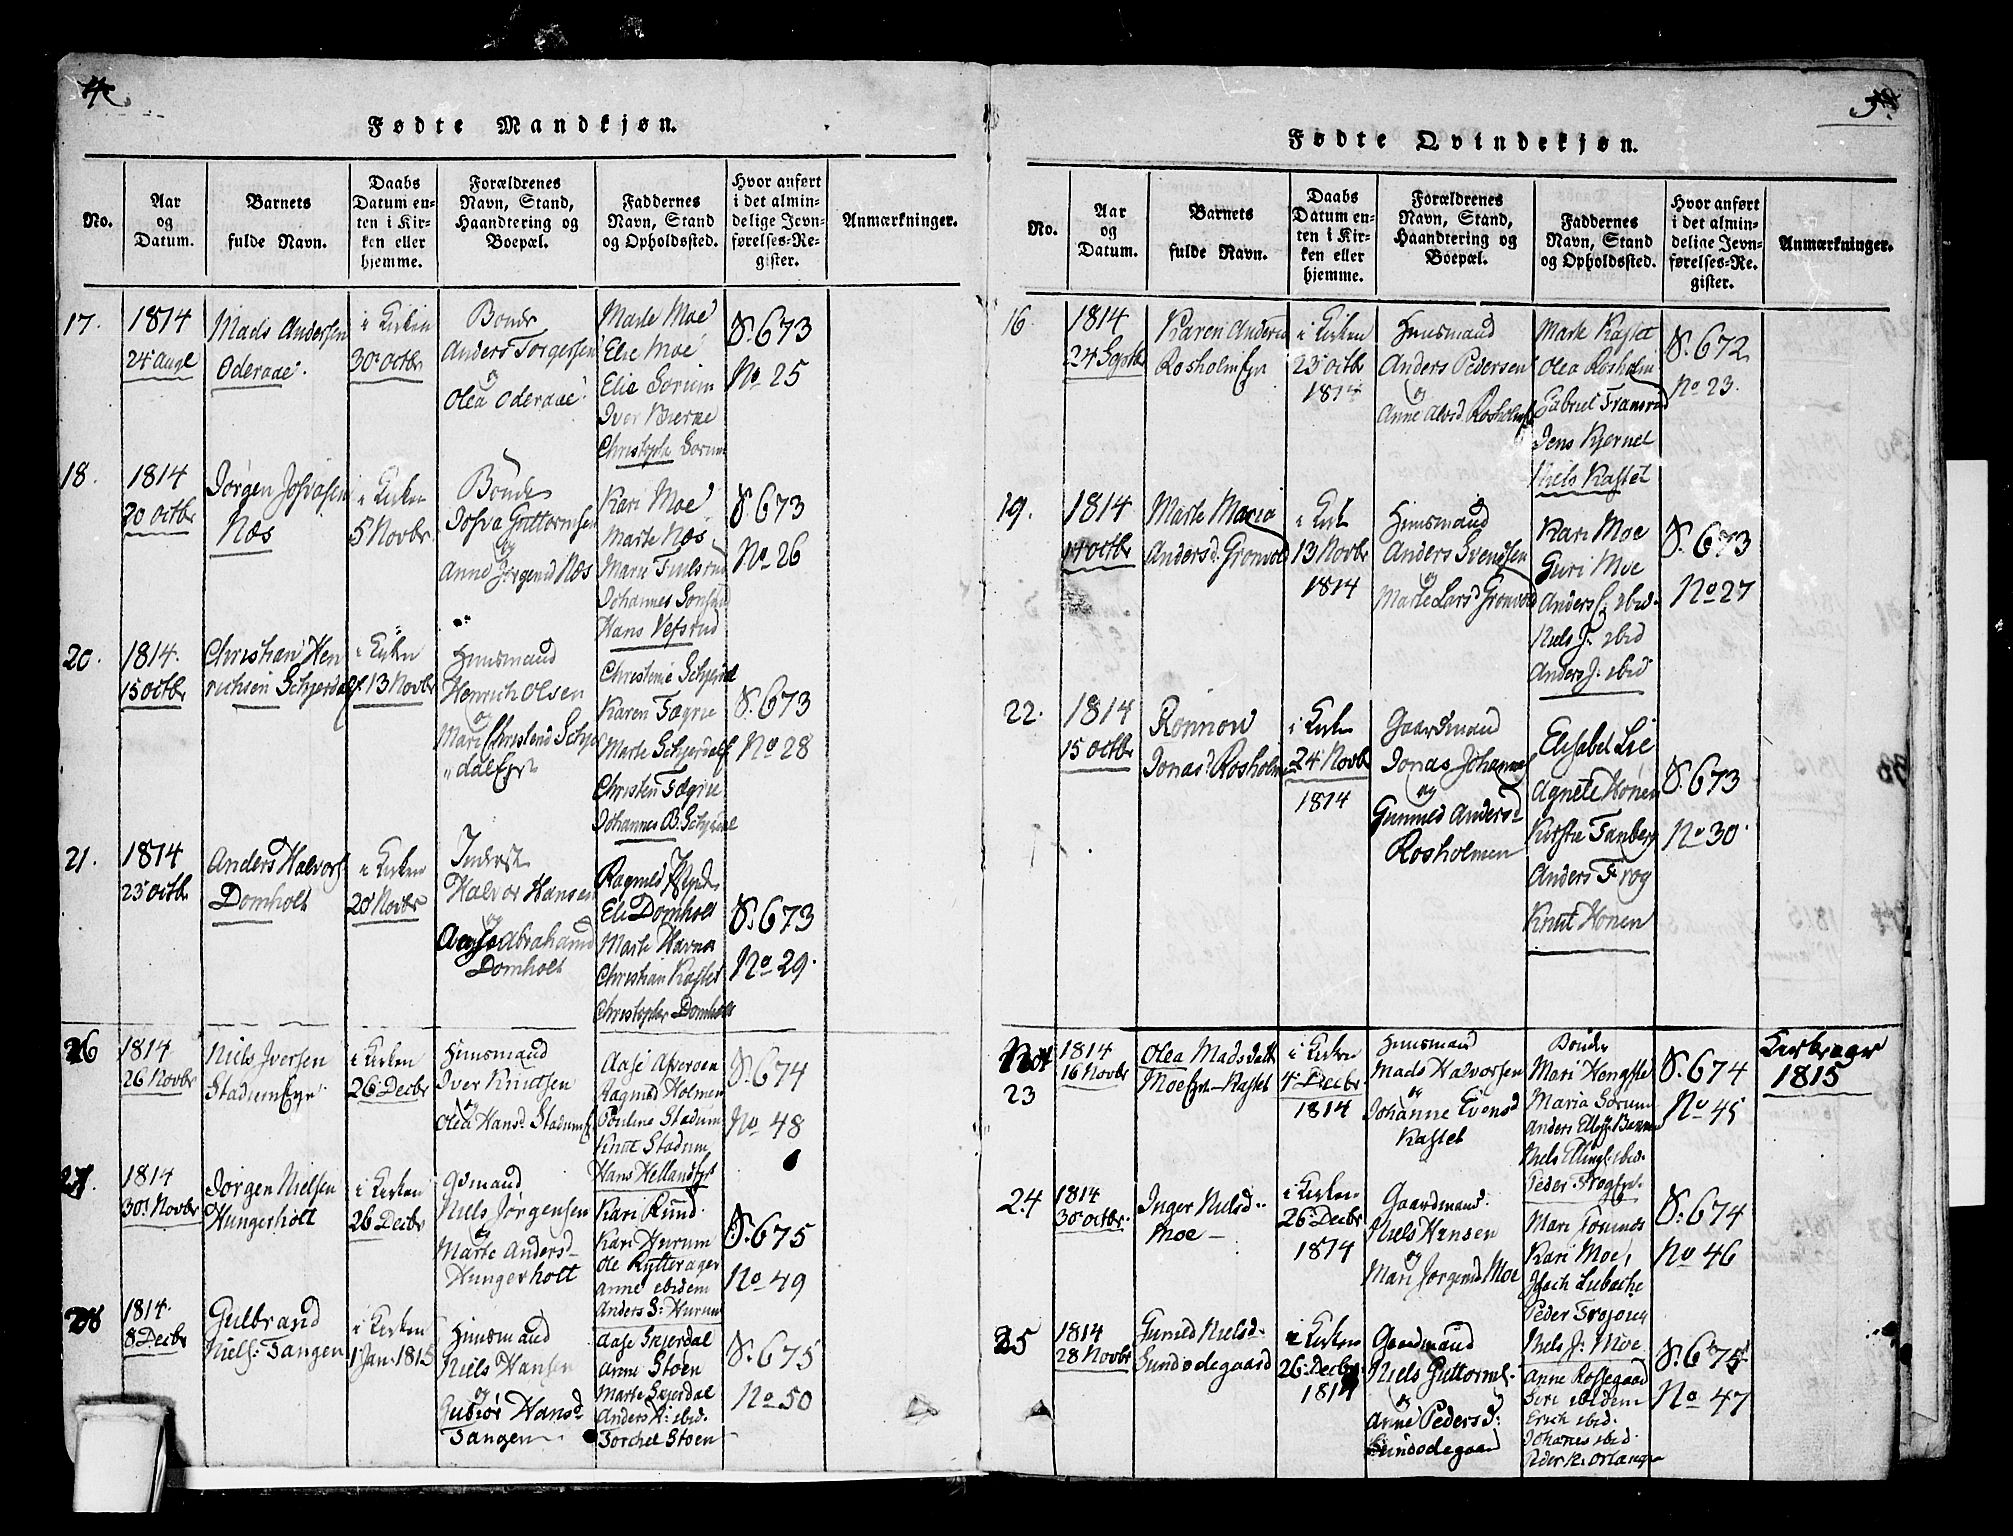 4
Fødte Mandkjøn.
No.
Aar og Datum.
Barnets fulde Navn.
Daabs Datum enten i Kirken eller hjemme.
Forældrenes Navn, Stand, Haandtering og Boepæl.
Faddernes Navn, Stand og Opholdssted.
Hvor anført i det almindelige Jevnførelses-Register.
Anmærkninger.
17.
1814
24 Augt
Mads Andersen
Oderaae.
i Kirken
30 Octbr
Bonde
Anders Torgersen
og
Olea Oderaae
Marte Moe
Elie Moe
Elie Sorum
Iver Bjerke
Christoph Sorum
S. 673
No 25
18.
1814
20 Octbr
Jørgen Josvasen
Næs
i Kirken
5 Novbr
Bonde
Josva Guttormsen
og
Anne Jørgensd Næs
Kari Moe
Marte Næs
Marie
Johannes
Hans Vefsrud
S. 673
No 26
20.
1814.
15 Octbr
Christian Hen
richsen Schjerdalsf.
i Kirken
13 Novbr
Huusmand
Henrich Olsen
og
Mari Christensd Schjer
dalsEjr
Christine Schjerdal
Karen Fægrie
Marte Schjerdal
Christen Fægrie
Johannes B. Schjerdal
S. 673
No 28
21.
1814
23 Octbr
Anders Halvors.
Domholt
i Kirken
20 Novbr
Inderst
Halvor Hansen
og
Aase Abrahamsd
Domholt
Ragnild
Eli Domholt
Marte Havnes
Christian Kastet
Christopher Domholt
S. 673
No 29.
26
1814
26 Novbr
Niels Iversen
StadumEjr
i Kirken
26 Decbr
Huusmand
Iver Knutsen
og
Olea Hansd Stadum
Aase
Ragnild Holmen
Pouline Stadum
Knut Stadum
Hans Helland
S. 674
No 48
27.
1814
30 Novbr
Jørgen Nielsen
Hungerholt
i Kirken
26 Decbr
Gdmand
Niels Jørgensen
og
Marte Andersd
Hungerholt
Kari Rund.
Kari Hurum
Ole Rytterager
Anne ibidem
Anders S: Hurum
S. 675
No 49
28
1814.
8 Decbr
Gulbrand
Niels: Tangen
i Kirken
1 Jan. 1815
Huusmand
Niels Hansen
og
Gubiør Hansd
Tangen
Aase Skjerdal
Anne Støen
Marte Skjerdal
Anders H: ibid.
Torchel Støen
S. 675
No 50
Fødte Qvindekjøn.
No.
Aar og Datum.
Barnets fulde Navn.
Daabs Datum enten i Kirken eller hjemme.
Forældrenes Navn, Stand, Haandtering og Boepæl.
Faddernes Navn, Stand og Opholdssted.
Hvor anført i det almindelige Jevnførelses-Register.
Anmærkninger.
16.
1814
24 Septbr
Karen Andersd
RosholmEjr
i Kirken
23 Octbr
1814
Huusmand
Anders Pedersen
og
Anne Alvsd Rosholm
Marte Kastet
Olea Rosholm
Gabriel Framrud
Jens Kjernet
Niels Kastet
S. 672
No 23.
19.
1814
14 Octbr
Marte Maria
Andersd: Gronvold
i Kirk
13 Novbr
1814
Huusmand
Anders Svendsen
og
Marte Larsd Gronvold
Kari Moe
Guri Moe
Anders C. ibid.
Niels J. ibid
Anders J. ibid
S. 673
No 27
22.
1814
15 Octbr
Ronnow
Jonasd: Rosholmen
i Kirken
24 Novbr
1814
Gaardmand
Jonas Johannes
og
Gunnild Andersd
Rosholmen
Elisabet Lie
Agnete Hönen
Kirstie Fanberg
Anders Frog
Knut Honen
S. 673
No 30.
23
1814
16 Novbr
Olea Madsdatt
MoeEjr-Kastet
i Kirken
4 Decbr
1814
Huusmand
Mads Halvorsen
og
Johanne Evensd
Kastet
Bonde
Mari Hengsle
Maria Sorum
Anders
Niels Ellings. ibid.
Peder FrogEjr.
S. 674
No 45
1815
24
1814
30 Octbr.
Inger Nielsd.
Moe
i Kirken
26 Decbr
1814
Gaardmand.
Niels Hansen
og
Mari Jørgensd Moe
Mari
Kari Moe
Isach Lubeche
Peder
Niels J: Moe
S. 674
No 46
25
1814
28 Novbr
Gunild Nielsd.
Sundødegaard
i Kirken
26 Decbr
1814
Gaardmand
Niels Guttorms.
og
Anne Peders D:
Sundodegaard
Anne Rossegaard
Siri ibidem
Erich ibid.
Johanes ibid.
S. 675
No 47